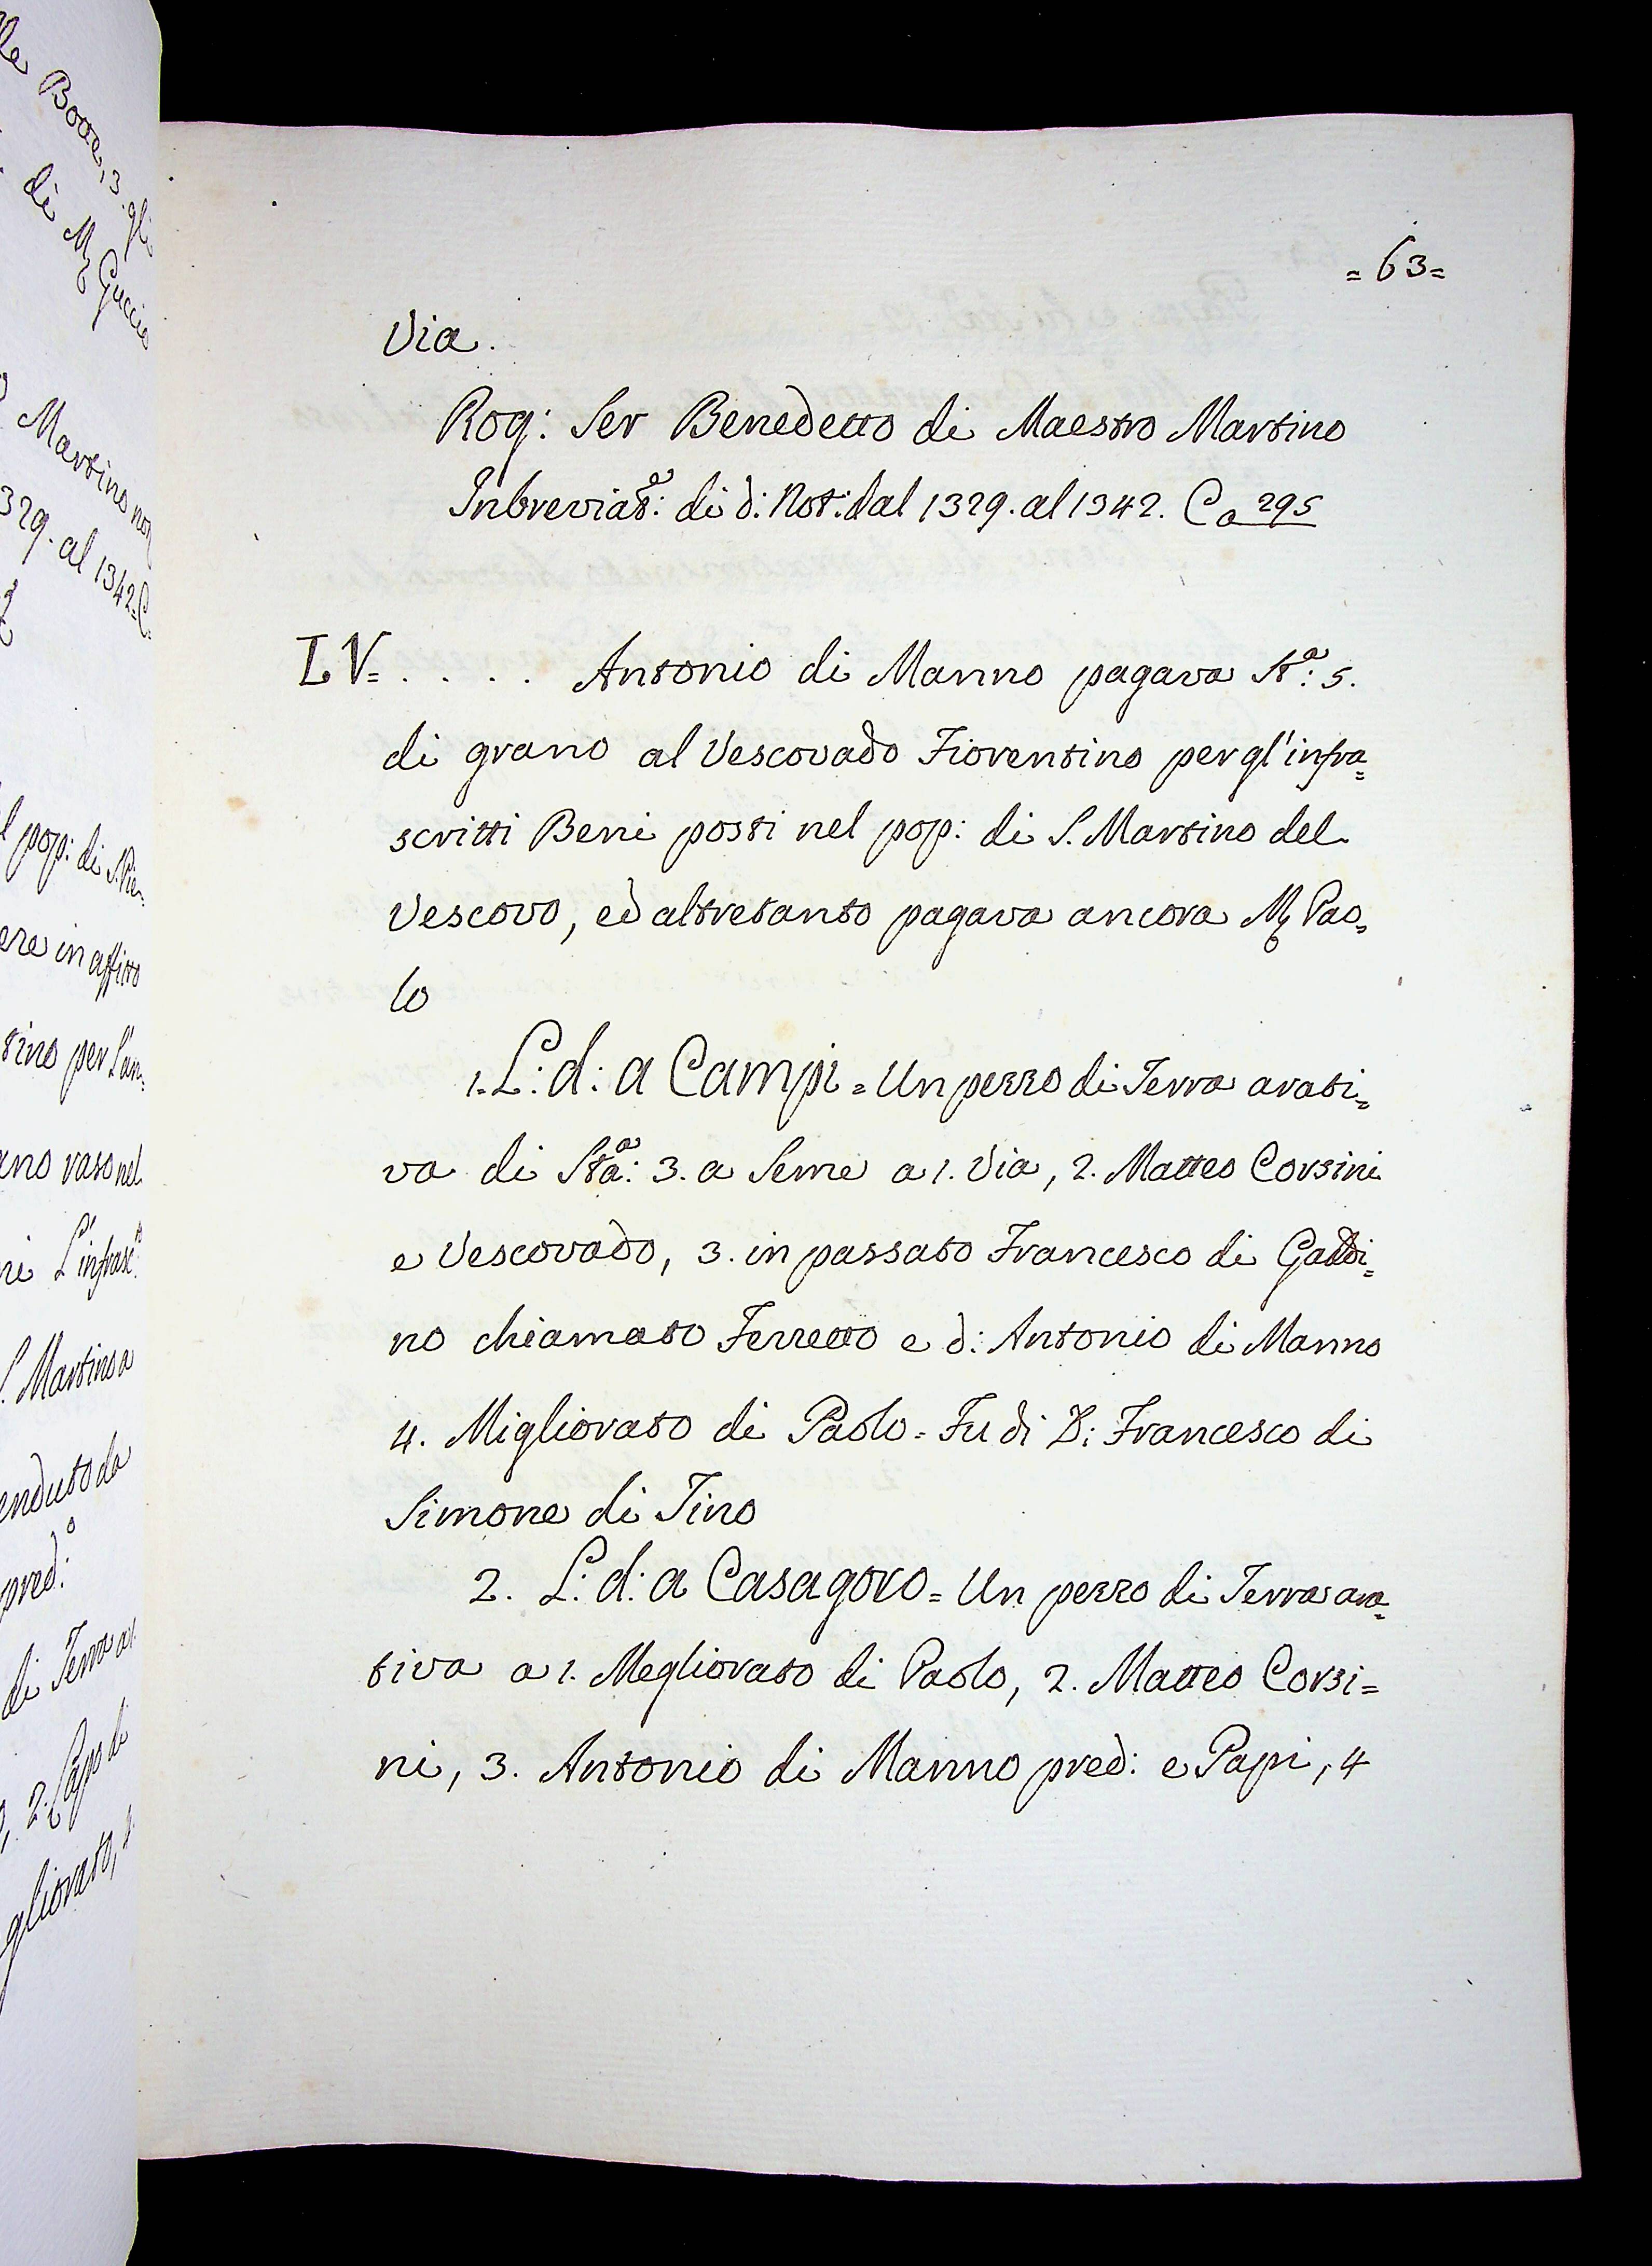 lle Botta, 3. gli
di M Guccio
Martino not
329. al 1342. C.
l pop: di S. Pie=
ere in affitto
tino per l'an=
ano raso nel
ni L'infrascº:
S. Martino a
enduto da
predº:
di Terra a
2. Capo di
gliorato,
= 63 =
Via.
Rog: Ser Benedetto di Maestro Martino
Inbreviatª: di d: Not: dal 1329. al 1342. Ca 295
LV= . . . . Antonio di Manno pagava Stª: 5.
di grano al Vescovado Fiorentino per gl'infra=
scritti Beni posti nel pop: di S. Martino del
Vescovo, ed altretanto pagava ancora M Pao=
lo
1. L: d: a Campi = Un pezzo di Terra arati=
va di Staª: 3. a Seme a 1. Via, 2. Matteo Corsini
e Vescovado, 3. in passato Francesco di Gaddi=
no chiamato Ferretto e d: Antonio di Manno
4. Migliorato di Paolo = Fu di D: Francesco di
Simone di Tino
2. L: d: a Casagoro = Un pezzo di Terra ara=
tiva a 1. Megliorato di Paolo, 2. Matteo Corsi=
ni, 3. Antonio di Manno pred: e Papi, 4